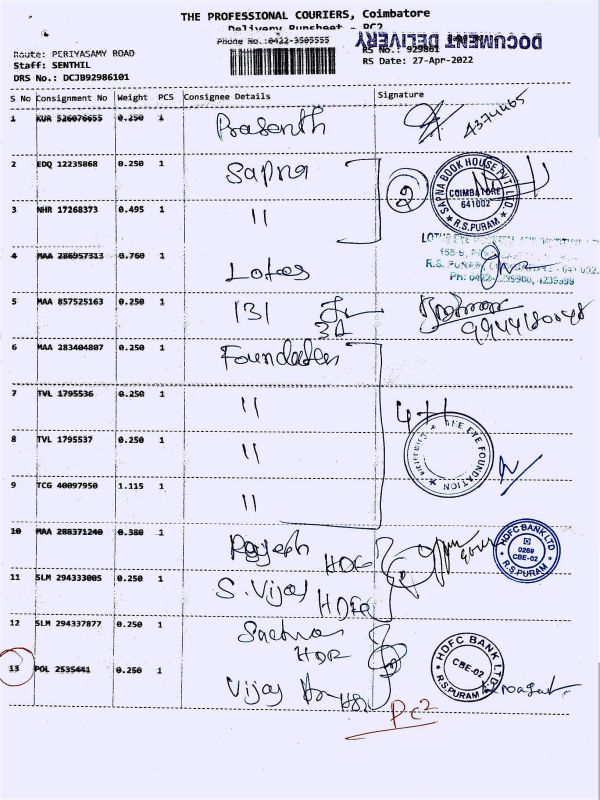 THE PROFESSIONAL COURIERS, Coimbatore
Delivery Runsheet - PC2
Phone No.:0422-3505555
DOCUMENT DELIVERY
Route: PERIYASAMY ROAD
RS No.: 929861
Staff: SENTHIL
RS Date: 27-Apr-2022
DRS No.: DCJB92986101
S No Consignment No Weight PCS Consignee Details Signature
1 KUR 526076655 0.250 1 Prasanth 4374465
2 EDQ 12235868 0.250 1 Sapna 2
SAPNA BOOK HOUSE PVT. LTD. COIMBATORE 641002 R.S.PURAM
3 NHR 17268373 0.495 1 "
4 MAA 286957313 0.760 1 Lotus
LOTUS EYE
R.S. PURAM, 641 002.
5 MAA 857525163 0.250 1 131
3A
6 MAA 283404807 0.250 1 Foundation
7 TVL 1795536 0.250 1 "
THE EYE FOUNDATION
8 TVL 1795537 0.250 1 "
9 TCG 40097950 1.115 1 "
10 MAA 288371240 0.380 1 Rajesh HDFC
HDFC BANK LTD 0269 CBE-02 R.S.PURAM
11 SLM 294333005 0.250 1 S. Vijay HDFC
12 SLM 294337877 0.250 1
HDFC BANK LTD. CBE-02 R.S.PURAM
13 POL 2535441 0.250 1 Vijay
PC2